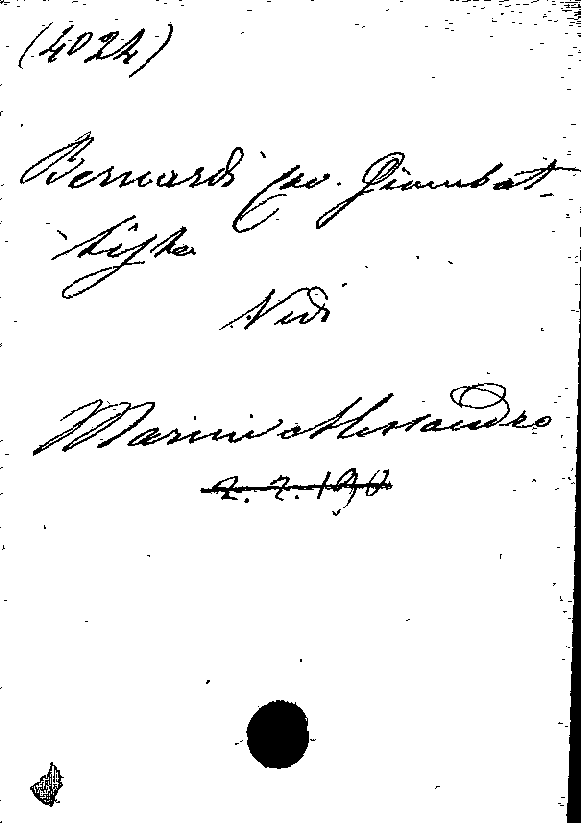 (4024)
Bernardi Cav. Giambat-
tista
Vedi
Marini Alessandro
2. 2. 190